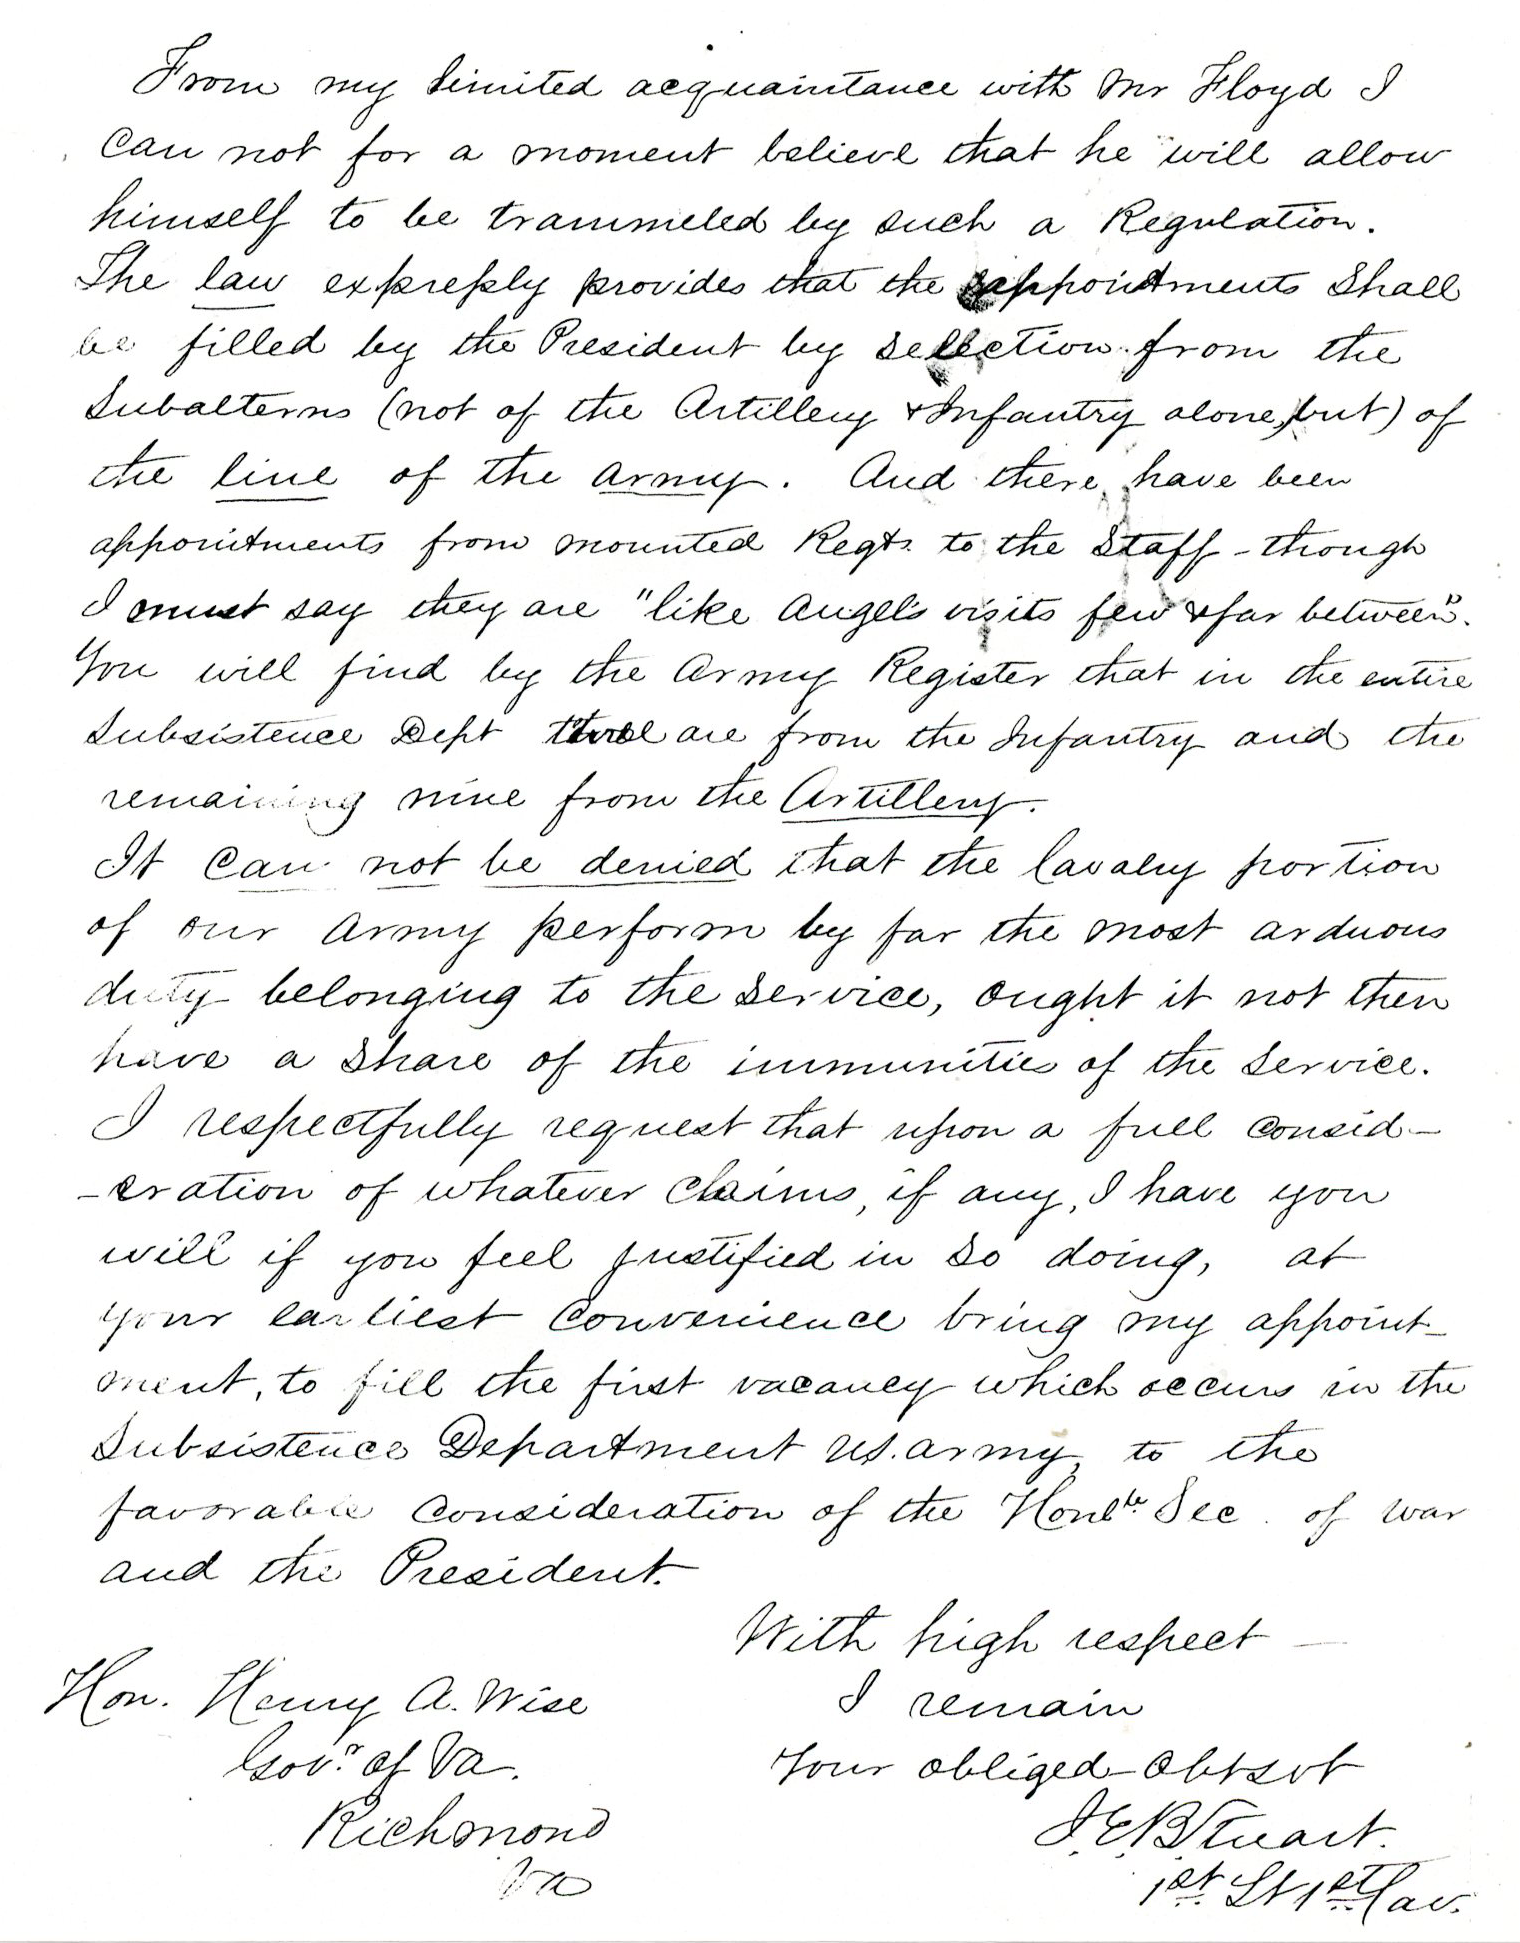 From my limited acquaintance with Mr Floyd I
can not for a moment believe that he will allow
himself to be trammeled by such a Regulation.
The law expressly provides that the appointments shall
be filled by the President by selection from the
subalterns (not of the Artillery & Infantry alone, but) of
the line of the Army. And there have been
appointments from mounted Regts. to the Staff - though
I must say they are "like Angel's visits few & far between".
You will find by the Army Register that in the entire
Subsistence Dept three are from the Infantry and the
remaining nine from the Artillery.
It can not be denied that the Cavalry portion
of our Army perform by far the most arduous
duty belonging to the service, ought it not then
have a share of the immunities of the service.
I respectfully request that upon a full consid-
-eration of whatever claims, if any, I have you
will if you feel justified in so doing, at
your earliest convenience bring my appoint-
ment, to fill the first vacancy which occurs in the
Subsistence Department U.S. Army, to the
favorable consideration of the Honble. Sec. of War
and the President.
With high respect —
I remain
Your obliged Obt svt
J.E.B. Stuart.
1st. Lt 1st. Cav.
Hon. Henry A. Wise
Govr. of Va.
Richmond
Va